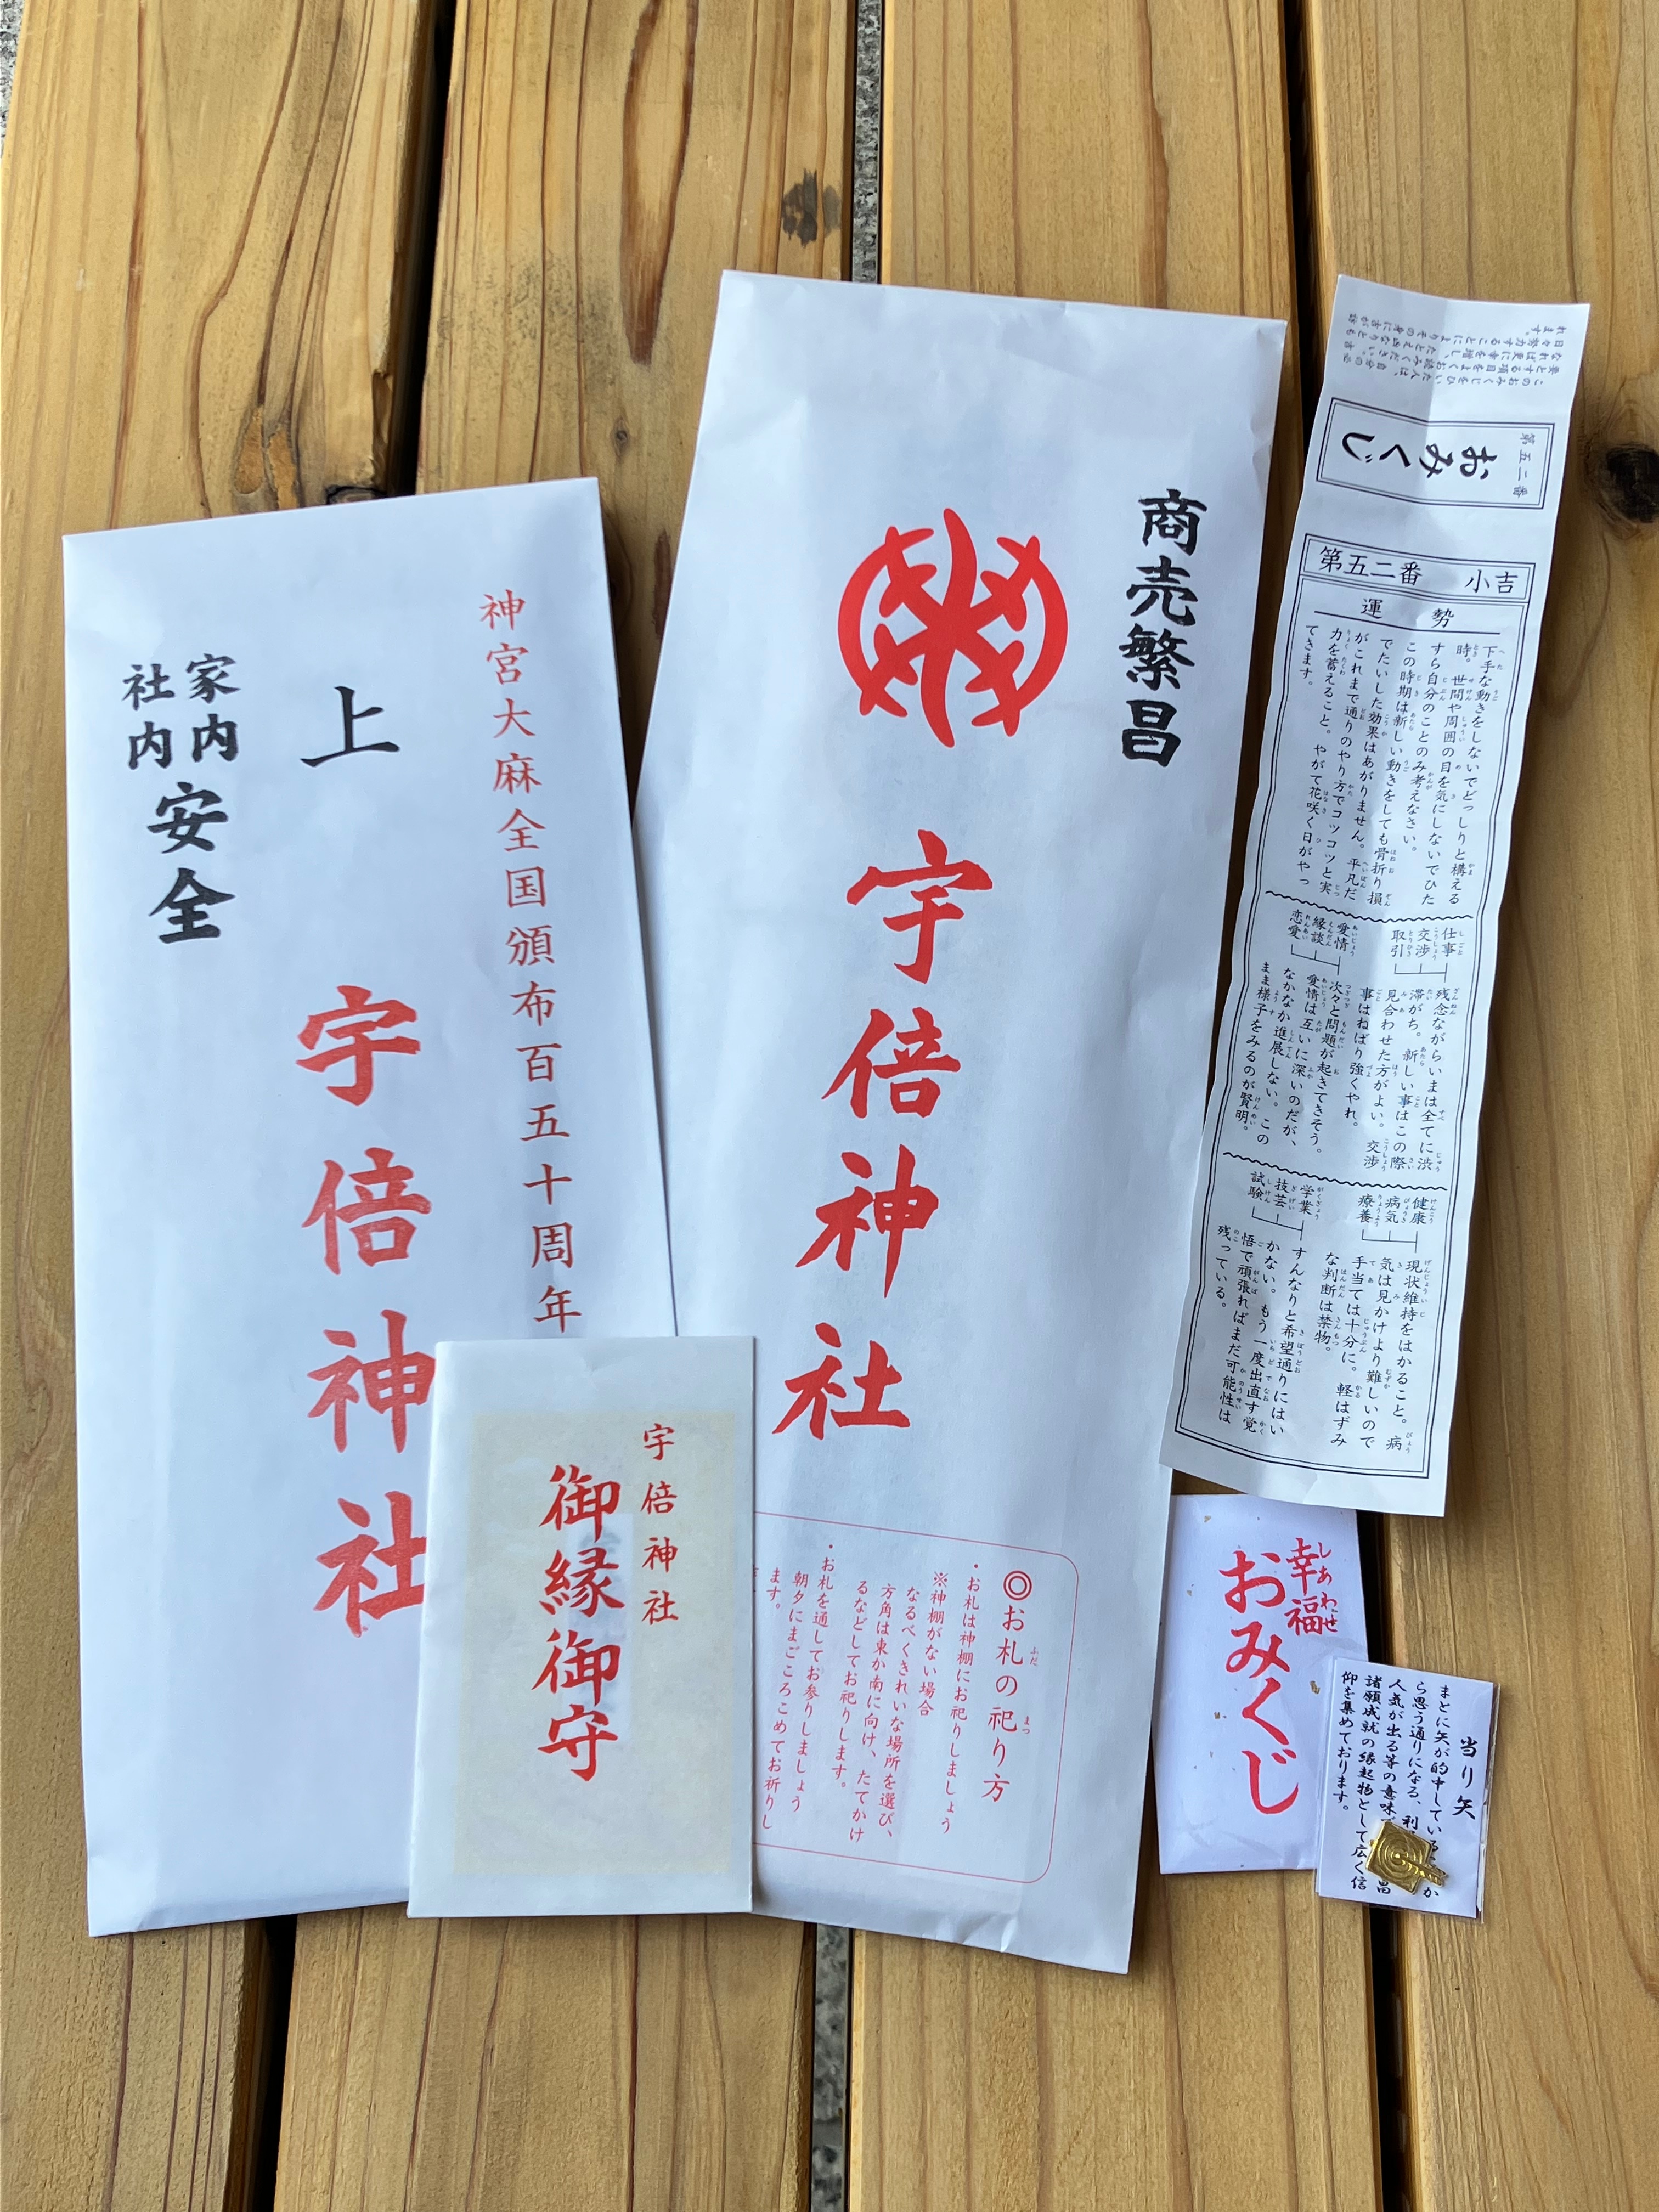 神宮大麻全国頒布百五十周年
上
宇倍神社
家内
社内
安全
商売繁昌
宇倍神社
◎お札の祀り方
・お札は神棚にお祀りしましょう
※神棚がない場合
なるべくきれいな場所を選び、
方角は東か南に向け、たてかけ
るなどしてお祀りします。
・お札を通してお参りしましょう
朝夕にまごころこめてお祈りし
ます。
宇倍神社
御縁御守
このおみくじをひいた人は、自分の必
要とする項目をよくお読みください。吉
なれば更に幸を増し、たとえ凶なりとも
日々努力することによりその身に吉が訪
れます。
第五二番
おみくじ
第五二番 小吉
運勢
下手な動きをしないでどっしりと構える
時。世間や周囲の目を気にしないでひた
すら自分のことのみ考えなさい。
この時期は新しい動きをしても骨折り損
でたいした効果はあがりません。平凡だ
がこれまで通りのやり方でコツコツと実
力を蓄えること。やがて花咲く日がやっ
てきます。
仕事
交渉
取引
残念ながらいまは全てに渋
滞がち。新しい事はこの際
見合わせた方がよい。交渉
事はねばり強くやれ。
愛情
縁談
恋愛
次々と問題が起きてきそう。
愛情は互いに深いのだが、
なかなか進展しない。この
まま様子をみるのが賢明。
健康
病気
療養
現状維持をはかること。病
気は見かけより難しいので
手当ては十分に。軽はずみ
な判断は禁物。
学業
技芸
試験
すんなりと希望通りにはい
かない。もう一度出直す覚
悟で頑張ればまだ可能性は
残っている。
幸福
しあわせ
おみくじ
当り矢
まとに矢が的中している
か
ら思う通りになる、利
人気が出る等の意味
昌
諸願成就の縁起物として広く信
仰を集めております。